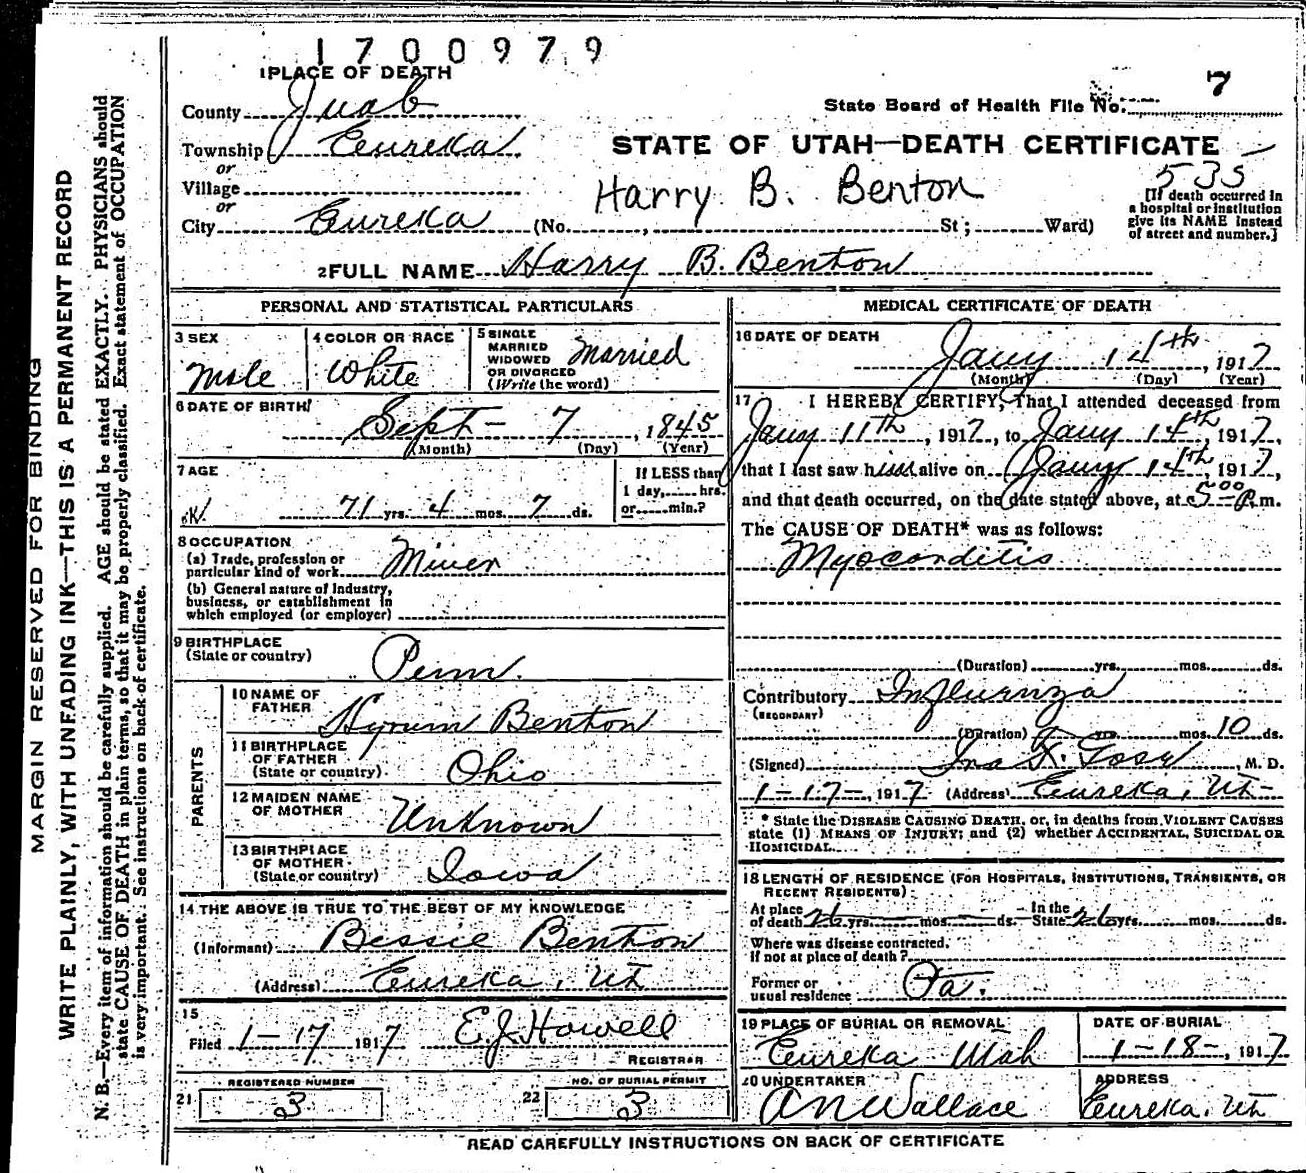 1700979
1 PLACE OF DEATH
7
County Juab
State Board of Health File No.
Township Eureka
or
STATE OF UTAH—DEATH CERTIFICATE
535
Village
or
Harry B. Benton
[If death occurred in
a hospital or institution
give its NAME instead
of street and number.]
City Eureka (No. , St; Ward)
2 FULL NAME Harry B. Benton
PERSONAL AND STATISTICAL PARTICULARS
3 SEX
Male
4 COLOR OR RACE
White
5 SINGLE
MARRIED
WIDOWED
OR DIVORCED
(Write the word)
Married
6 DATE OF BIRTH
Sept - 7, 1845
(Month) (Day) (Year)
7 AGE
71 yrs. 4 mos. 7 ds.
If LESS than
1 day, hrs.
or min.?
8 OCCUPATION
(a) Trade, profession or
particular kind of work Miner
(b) General nature of Industry,
business, or establishment in
which employed (or employer)
9 BIRTHPLACE
(State or country)
Penn.
PARENTS
10 NAME OF
FATHER
Hyrum Benton
11 BIRTHPLACE
OF FATHER
(State or country) Ohio
12 MAIDEN NAME
OF MOTHER
Unknown
13 BIRTHPLACE
OF MOTHER
(State or country) Iowa
14 THE ABOVE IS TRUE TO THE BEST OF MY KNOWLEDGE
(Informant) Bessie Benton
(Address) Eureka, Ut
15
Filed 1-17 1917 E.J. Howell
REGISTRAR
REGISTERED NUMBER
21 3
NO. OF BURIAL PERMIT
22 3
MEDICAL CERTIFICATE OF DEATH
16 DATE OF DEATH
Jany 14th, 1917
(Month) (Day) (Year)
17 I HEREBY CERTIFY, That I attended deceased from
Jany 11th, 1917, to Jany 14th, 1917,
that I last saw him alive on Jany 14th, 1917,
and that death occurred, on the date stated above, at 5 00 P.m.
The CAUSE OF DEATH* was as follows:
Myocorditis
(Duration) yrs. mos. ds.
Contributory Influenza
(SECONDARY)
(Duration) yrs. mos. 10 ds.
(Signed) M. D.
1-17-, 1917 (Address) Eureka, Ut-
* State the DISEASE CAUSING DEATH, or, in deaths from VIOLENT CAUSES
state (1) MEANS OF INJURY; and (2) whether ACCIDENTAL, SUICIDAL OR
HOMICIDAL.
18 LENGTH OF RESIDENCE (FOR HOSPITALS, INSTITUTIONS, TRANSIENTS, OR
RECENT RESIDENTS)
At place
of death 26 yrs. mos. ds. In the
State 26 yrs. mos. ds.
Where was disease contracted.
if not at place of death?
Former or
usual residence Pa.
19 PLACE OF BURIAL OR REMOVAL
Eureka Utah
DATE OF BURIAL
1-18-, 1917
20 UNDERTAKER
A N Wallace
ADDRESS
Eureka, Ut
READ CAREFULLY INSTRUCTIONS ON BACK OF CERTIFICATE
MARGIN RESERVED FOR BINDING
WRITE PLAINLY, WITH UNFADING INK—THIS IS A PERMANENT RECORD
N. B.—Every item of information should be carefully supplied. AGE should be stated EXACTLY. PHYSICIANS should
state CAUSE OF DEATH in plain terms, so that it may be properly classified. Exact statement of OCCUPATION
is very important. See instructions on back of certificate.